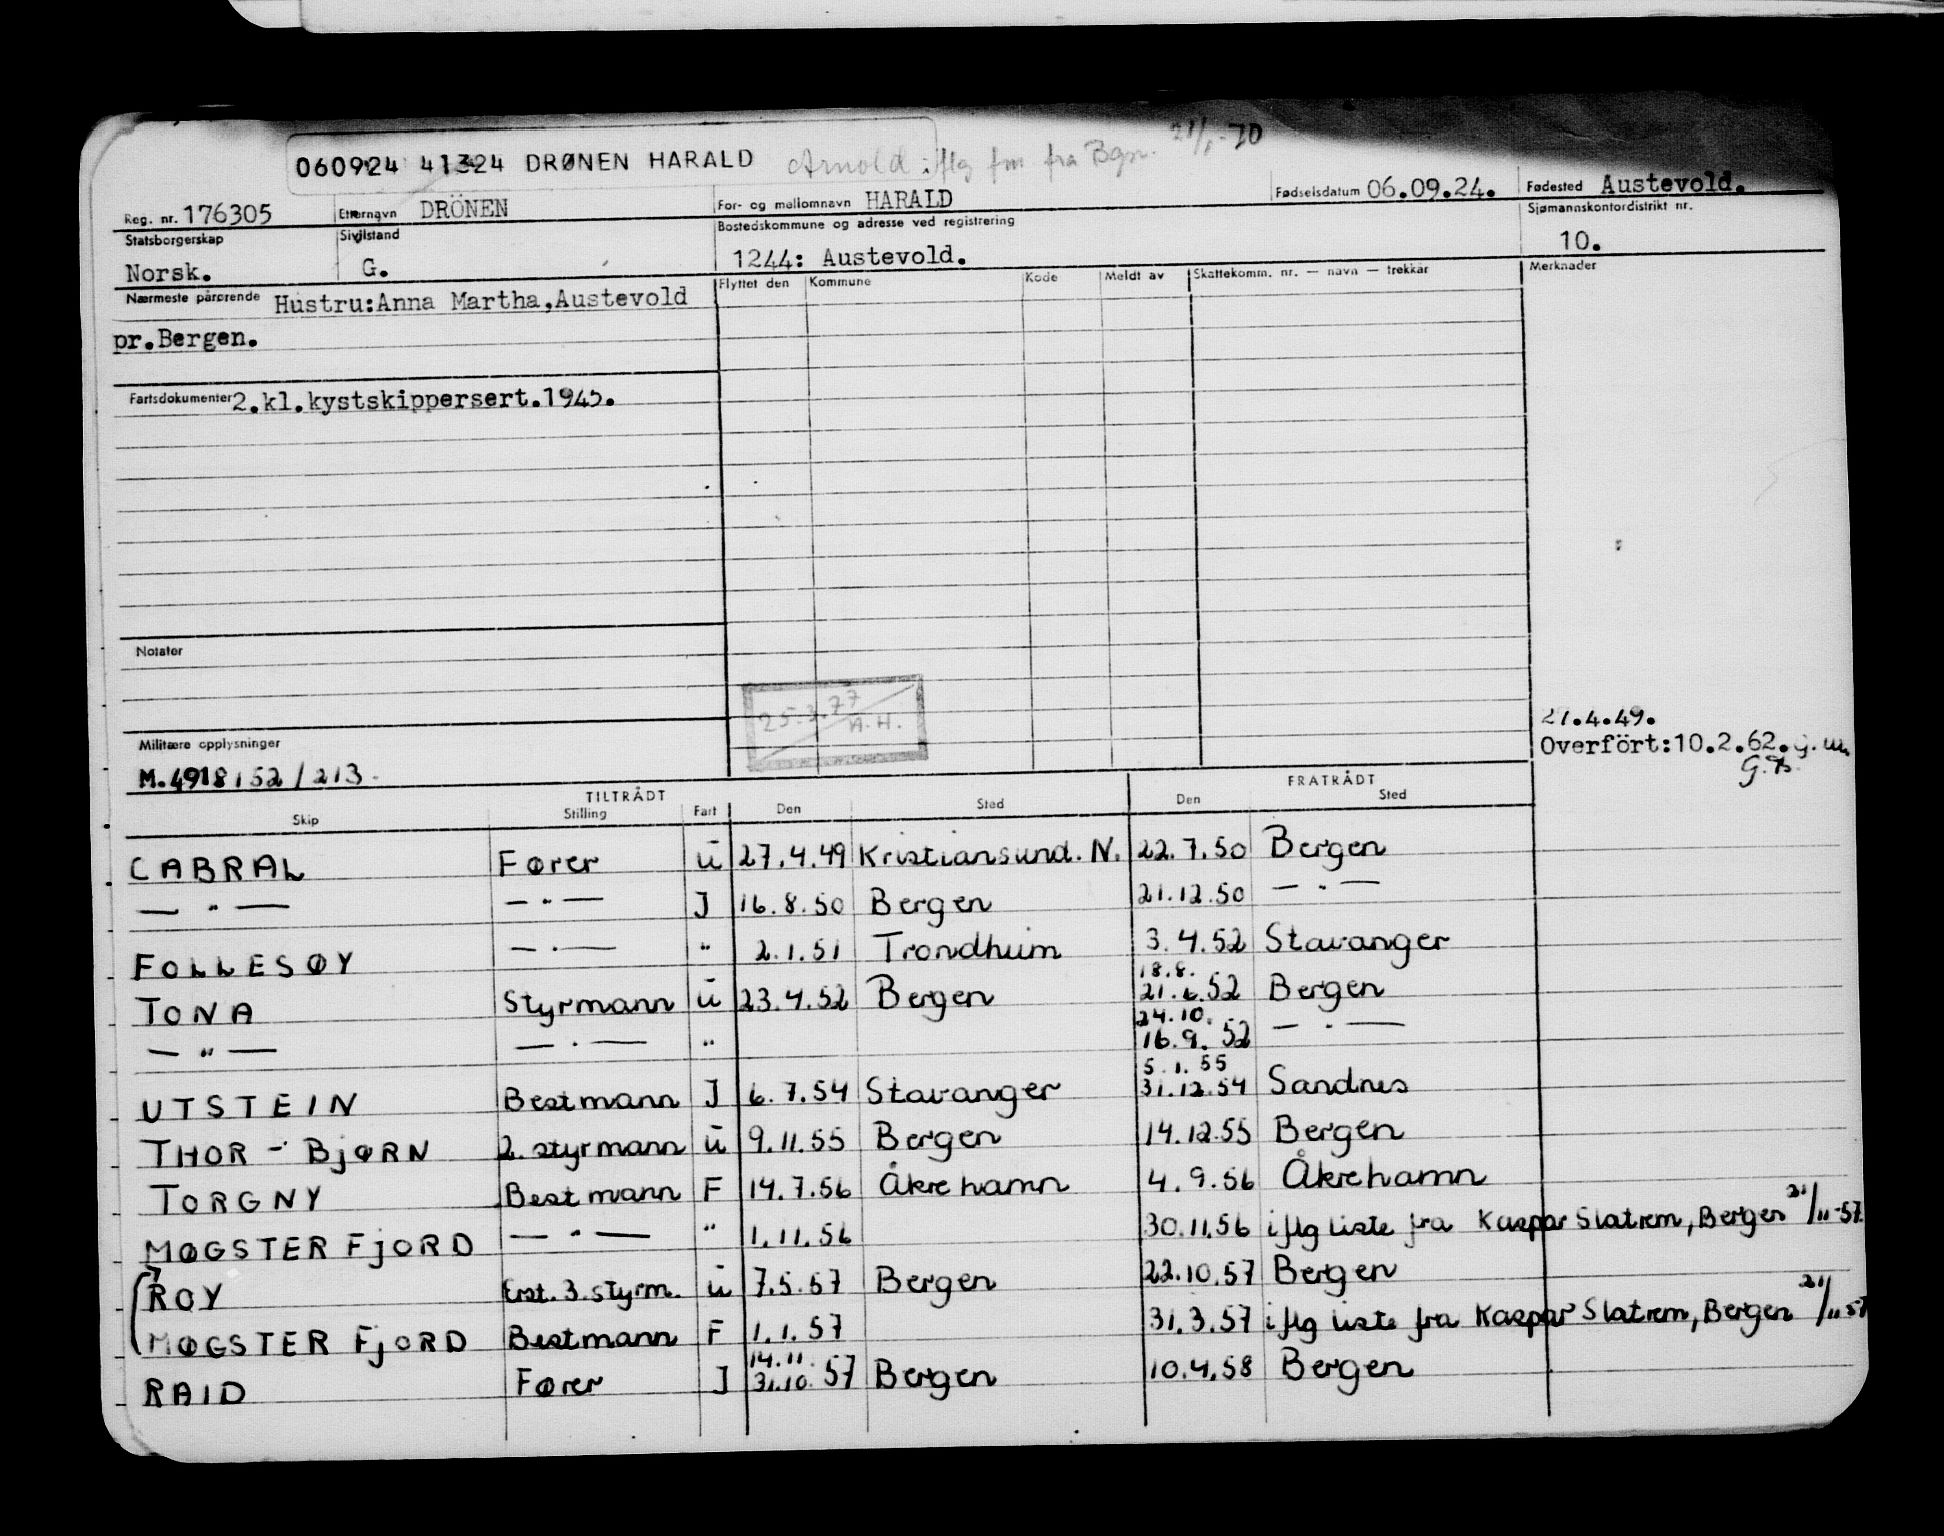 060924 41324 DRØNEN HARALD Arnold iflg fm fra Bgn. 21/1-70
Reg. nr. 176305 Etternavn DRÖNEN For- og mellomnavn HARALD Fødselsdatum 06.09.24. Fødested Austevold.
Statsborgerskap Sivilstand Bostedskommune og adresse ved registrering Sjømannskontordistrikt nr.
Norsk. G. 1244: Austevold. 10.
Nærmeste pårørende Hustru:Anna Martha,Austevold Flyttet den Kommune Kode Meldt av Skattekomm. nr. — navn — trekkår Merknader
pr.Bergen.
Fartsdokumenter 2.kl.kystskippersert.1945.
Notater
25.3.77
A.H.
27.4.49.
Militære opplysninger
Overfört:10.2.62.
M.4918152/213.
TILTRÅDT FRATRÅDT
Skip Stilling Fart Den Sted Den Sted
CABRAL Fører U 27.4.49 Kristiansund. N. 22.7.50 Bergen
— " — — " — J 16.8.50 Bergen 21.12.50 — " —
FOLLESØY — " — " 2.1.51 Trondheim 3.4.52 Stavanger
18.8.
TONA Styrmann U 23.4.52 Bergen 21.6.52 Bergen
24.10.
— " — — " — " 16.9.52 — " —
5.1.55
UTSTEIN Bestmann J 6.7.54 Stavanger 31.12.54 Sandnes
THOR - BJØRN 2. styrmann U 9.11.55 Bergen 14.12.55 Bergen
TORGNY Bestmann F 14.7.56 Åkrehamn 4.9.56 Åkrehamn
MØGSTERFJORD — " — " 1.11.56 30.11.56 iflg liste fra Kaspar Slatrem, Bergen 21/11-57.
ROY Erst. 3. styrm. U 7.5.57 Bergen 22.10.57 Bergen
MØGSTER FJORD Bestmann F 1.1.57 31.3.57 iflg liste fra Kaspar Slatrem, Bergen 21/11 57
14.11.
RAID Fører J 31.10.57 Bergen 10.4.58 Bergen